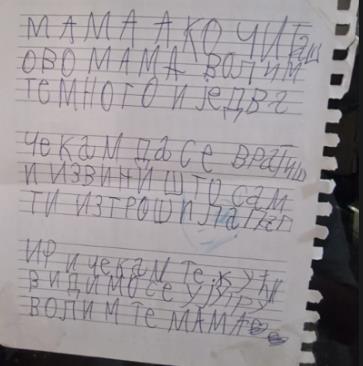 МАМА АКО ЧИТаш
ОВО МАМА ВОЛИМ
ТЕ МНОГО И ЈЕДВа
чекам да се врати
И ИЗВИНИ ШТО сам
ТИ ИЗТРОШИла ПаП
ИР и чекам те к ућу
видимо се ујутру
ВОЛИМ ТЕ МАМА